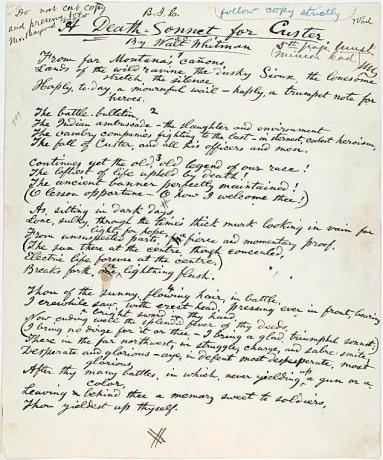 Do not cut copy
and preserve
Mr. Bayard
B. & C.
(follow copy strictly)
A Death-Sonnet for Custer
By Walt Whitman
5th page
From far Montana's cañons,
Lands of the wild ravine, the dusky Sioux, the lonesome
stretch, the silence,
Haply, to-day, a mournful wail – haply, a trumpet note for
heroes.
2
The battle-bulletin,
The Indian ambuscade – the slaughter and environment
The cavalry companies fighting to the last – in sternest, coolest heroism,
The fall of Custer, and all his officers and men.
3
Continues yet the old, old legend of our race!
The loftiest of life upheld by death!
The ancient banner perfectly maintained!
(O lesson opportune – O how I welcome thee!)
As, sitting in dark days,
Lone, sulky, through the time's thick murk looking in vain for
light, for hope,
From unsuspected parts, a fierce and momentary proof,
(The sun there at the centre, though concealed,
Electric life forever at the centre,)
Breaks forth, a lightning flash.
4
Thou of the sunny, flowing hair, in battle,
I erewhile saw, with erect head, pressing ever in front, bearing
a bright sword in thy hand,
Now ending well the splendid fever of thy deeds,
(I bring no dirge for it or thee – I bring a glad triumphal sonnet;)
There in the far northwest, in struggle, charge, and sabre-smite,
Desperate and glorious – aye, in defeat most desperate, most
glorious,
After thy many battles, in which, never yielding up a gun or a
color,
Leaving behind thee a memory sweet to soldiers,
Thou yieldest up thyself.